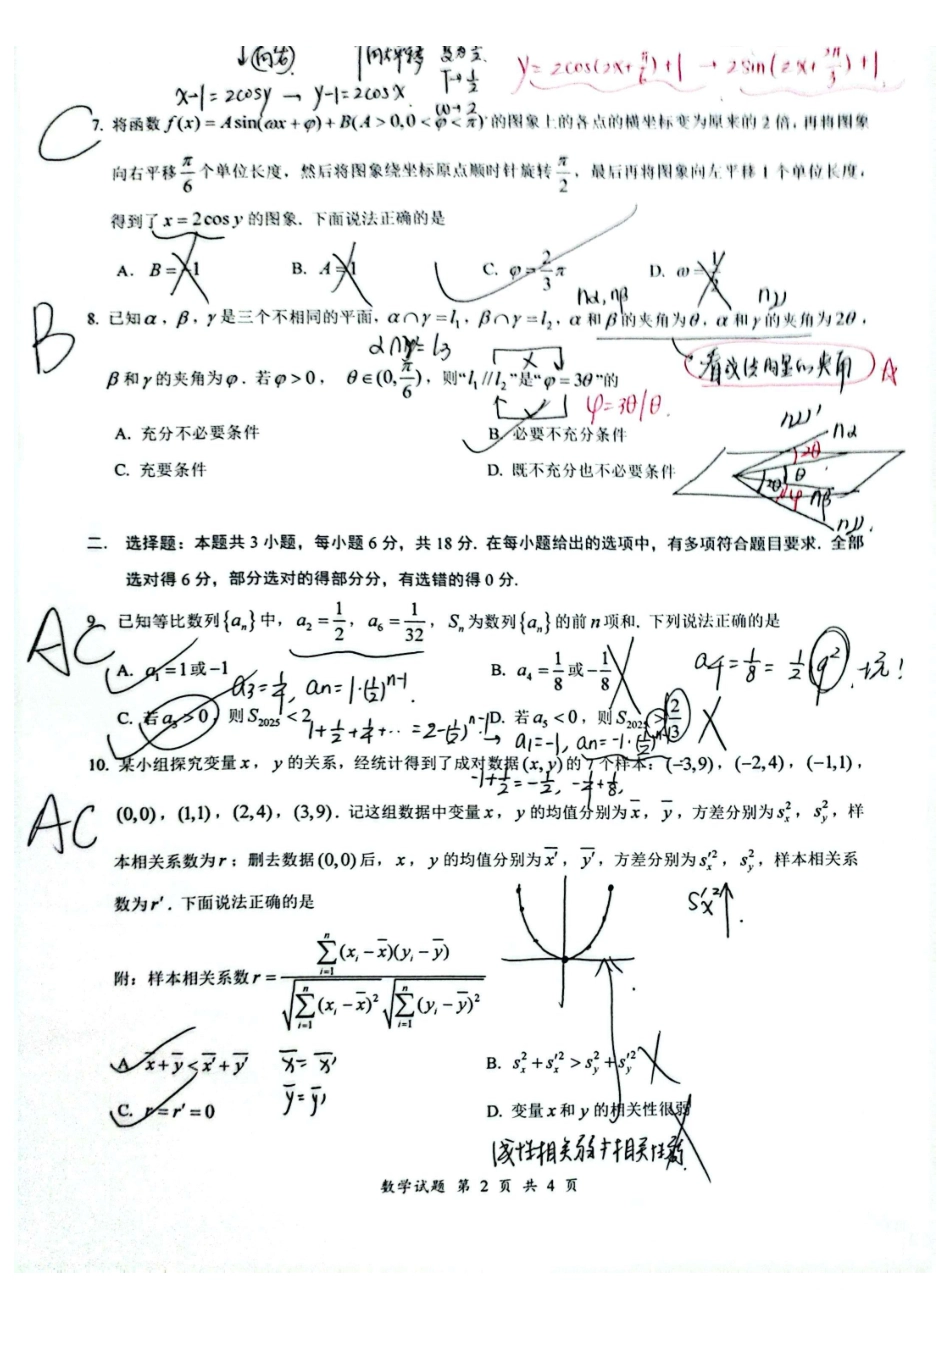 ↓(向右)
x-1=2cosy → y-1=2cosx
T→½
ω→2
y=2cos(2x+π/6)+1 → 2sin(2x+2π/3)+1
C
7. 将函数 f(x)=Asin(ωx+φ)+B(A>0,0<φ<π) 的图象上的各点的横坐标变为原来的 2 倍，再将图象
向右平移 π/6 个单位长度，然后将图象绕坐标原点顺时针旋转 π/2，最后再将图象向左平移 1 个单位长度，
得到了 x=2cosy 的图象．下面说法正确的是
A. B=-1
B. A=1
C. φ=2/3π
D. ω=1/2
B
8. 已知α，β，γ是三个不相同的平面，α∩γ=l₁，β∩γ=l₂，α和β的夹角为θ，α和γ的夹角为2θ，
α∩β=l₃
β和γ的夹角为φ．若φ>0，θ∈(0,π/6)，则“l₁//l₂”是“φ=3θ”的
φ=3θ/θ.
A
A. 充分不必要条件
B. 必要不充分条件
C. 充要条件
D. 既不充分也不必要条件
nα
2θ
θ
φ
nβ
二． 选择题：本题共 3 小题，每小题 6 分，共 18 分．在每小题给出的选项中，有多项符合题目要求．全部
选对得 6 分，部分选对的得部分分，有选错的得 0 分．
AC
9. 已知等比数列{aₙ}中，a₂=1/2，a₆=1/32，Sₙ为数列{aₙ}的前n项和．下列说法正确的是
A. a₁=1或-1
B. a₄=1/8或-1/8
a₄=1/8=1/2 q² 坑!
a₃=1/4, aₙ=1·(1/2)ⁿ⁻¹
C. 若a₅>0，则S₂₀₂₅<2
D. 若a₅<0，则S₂₀₂₅>2/3
1+1/2+1/4+··=2-(1/2)ⁿ⁻¹
→ a₁=-1, aₙ=-1·(-1/2)ⁿ⁻¹
10. 某小组探究变量x，y的关系，经统计得到了成对数据(x,y)的7个样本：(-3,9)，(-2,4)，(-1,1)，
-1+1/2=-1/2, -1/4+1/8,
AC
(0,0)，(1,1)，(2,4)，(3,9)．记这组数据中变量x，y的均值分别为x̄，ȳ，方差分别为sₓ²，s_y²，样
本相关系数为r；删去数据(0,0)后，x，y的均值分别为x̄′，ȳ′，方差分别为sₓ′²，s_y′²，样本相关系
数为r′．下面说法正确的是
Sₓ′²↑.
附：样本相关系数r=∑ᵢ₌₁ⁿ(xᵢ-x̄)(yᵢ-ȳ)/(√∑ᵢ₌₁ⁿ(xᵢ-x̄)² √∑ᵢ₌₁ⁿ(yᵢ-ȳ)²)
A. x̄+ȳ<x̄′+ȳ′
x̄=x̄′
B. sₓ²+sₓ′²>s_y²+s_y′²
C. r=r′=0
ȳ=ȳ′
D. 变量x和y的相关性很弱
线性相关弱≠相关性弱
数学试题 第 2 页 共 4 页